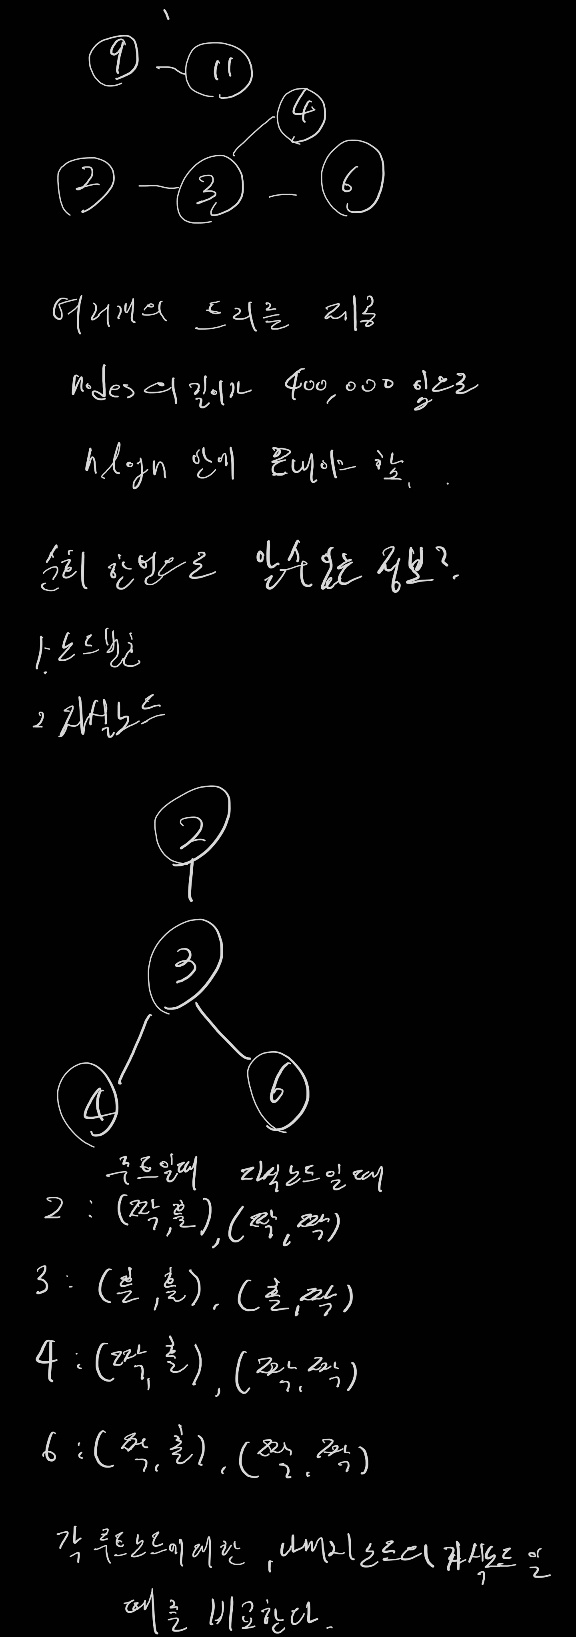 9 11
4
2 3 6
여러개의 트리를 제공
nodes의 길이가 400,000 임으로
nlogn 안에 끝내야 함.
순회 한번으로 알수있는 정보?
1. 노드번호
2 자식노드
2
3
4 6
루트일때 자식노드일때
2 : (짝,홀), (짝,짝)
3 : (홀,홀), (홀,짝)
4 : (짝,홀), (짝,짝)
6 : (짝,홀), (짝,짝)
각 루트노드에대한, 나머지노드의 자식노드일
때를 비교한다.